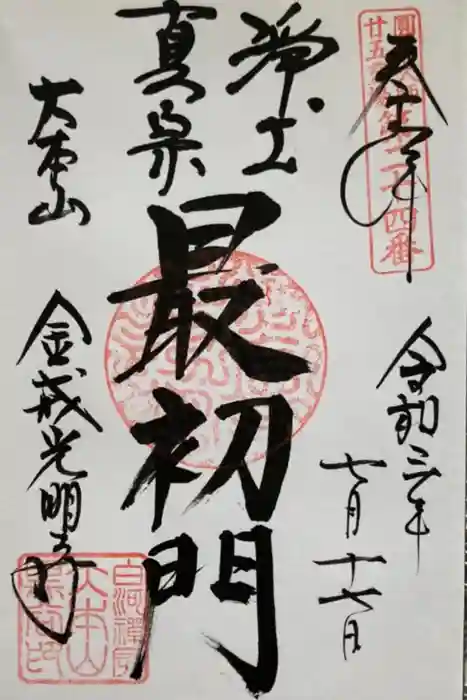 奉拝
圓光大師
廿五霊場第二十四番
令和三年
七月十七日
浄土
真宗
最初門
大本山
金戒光明寺
白河禅房
大本山